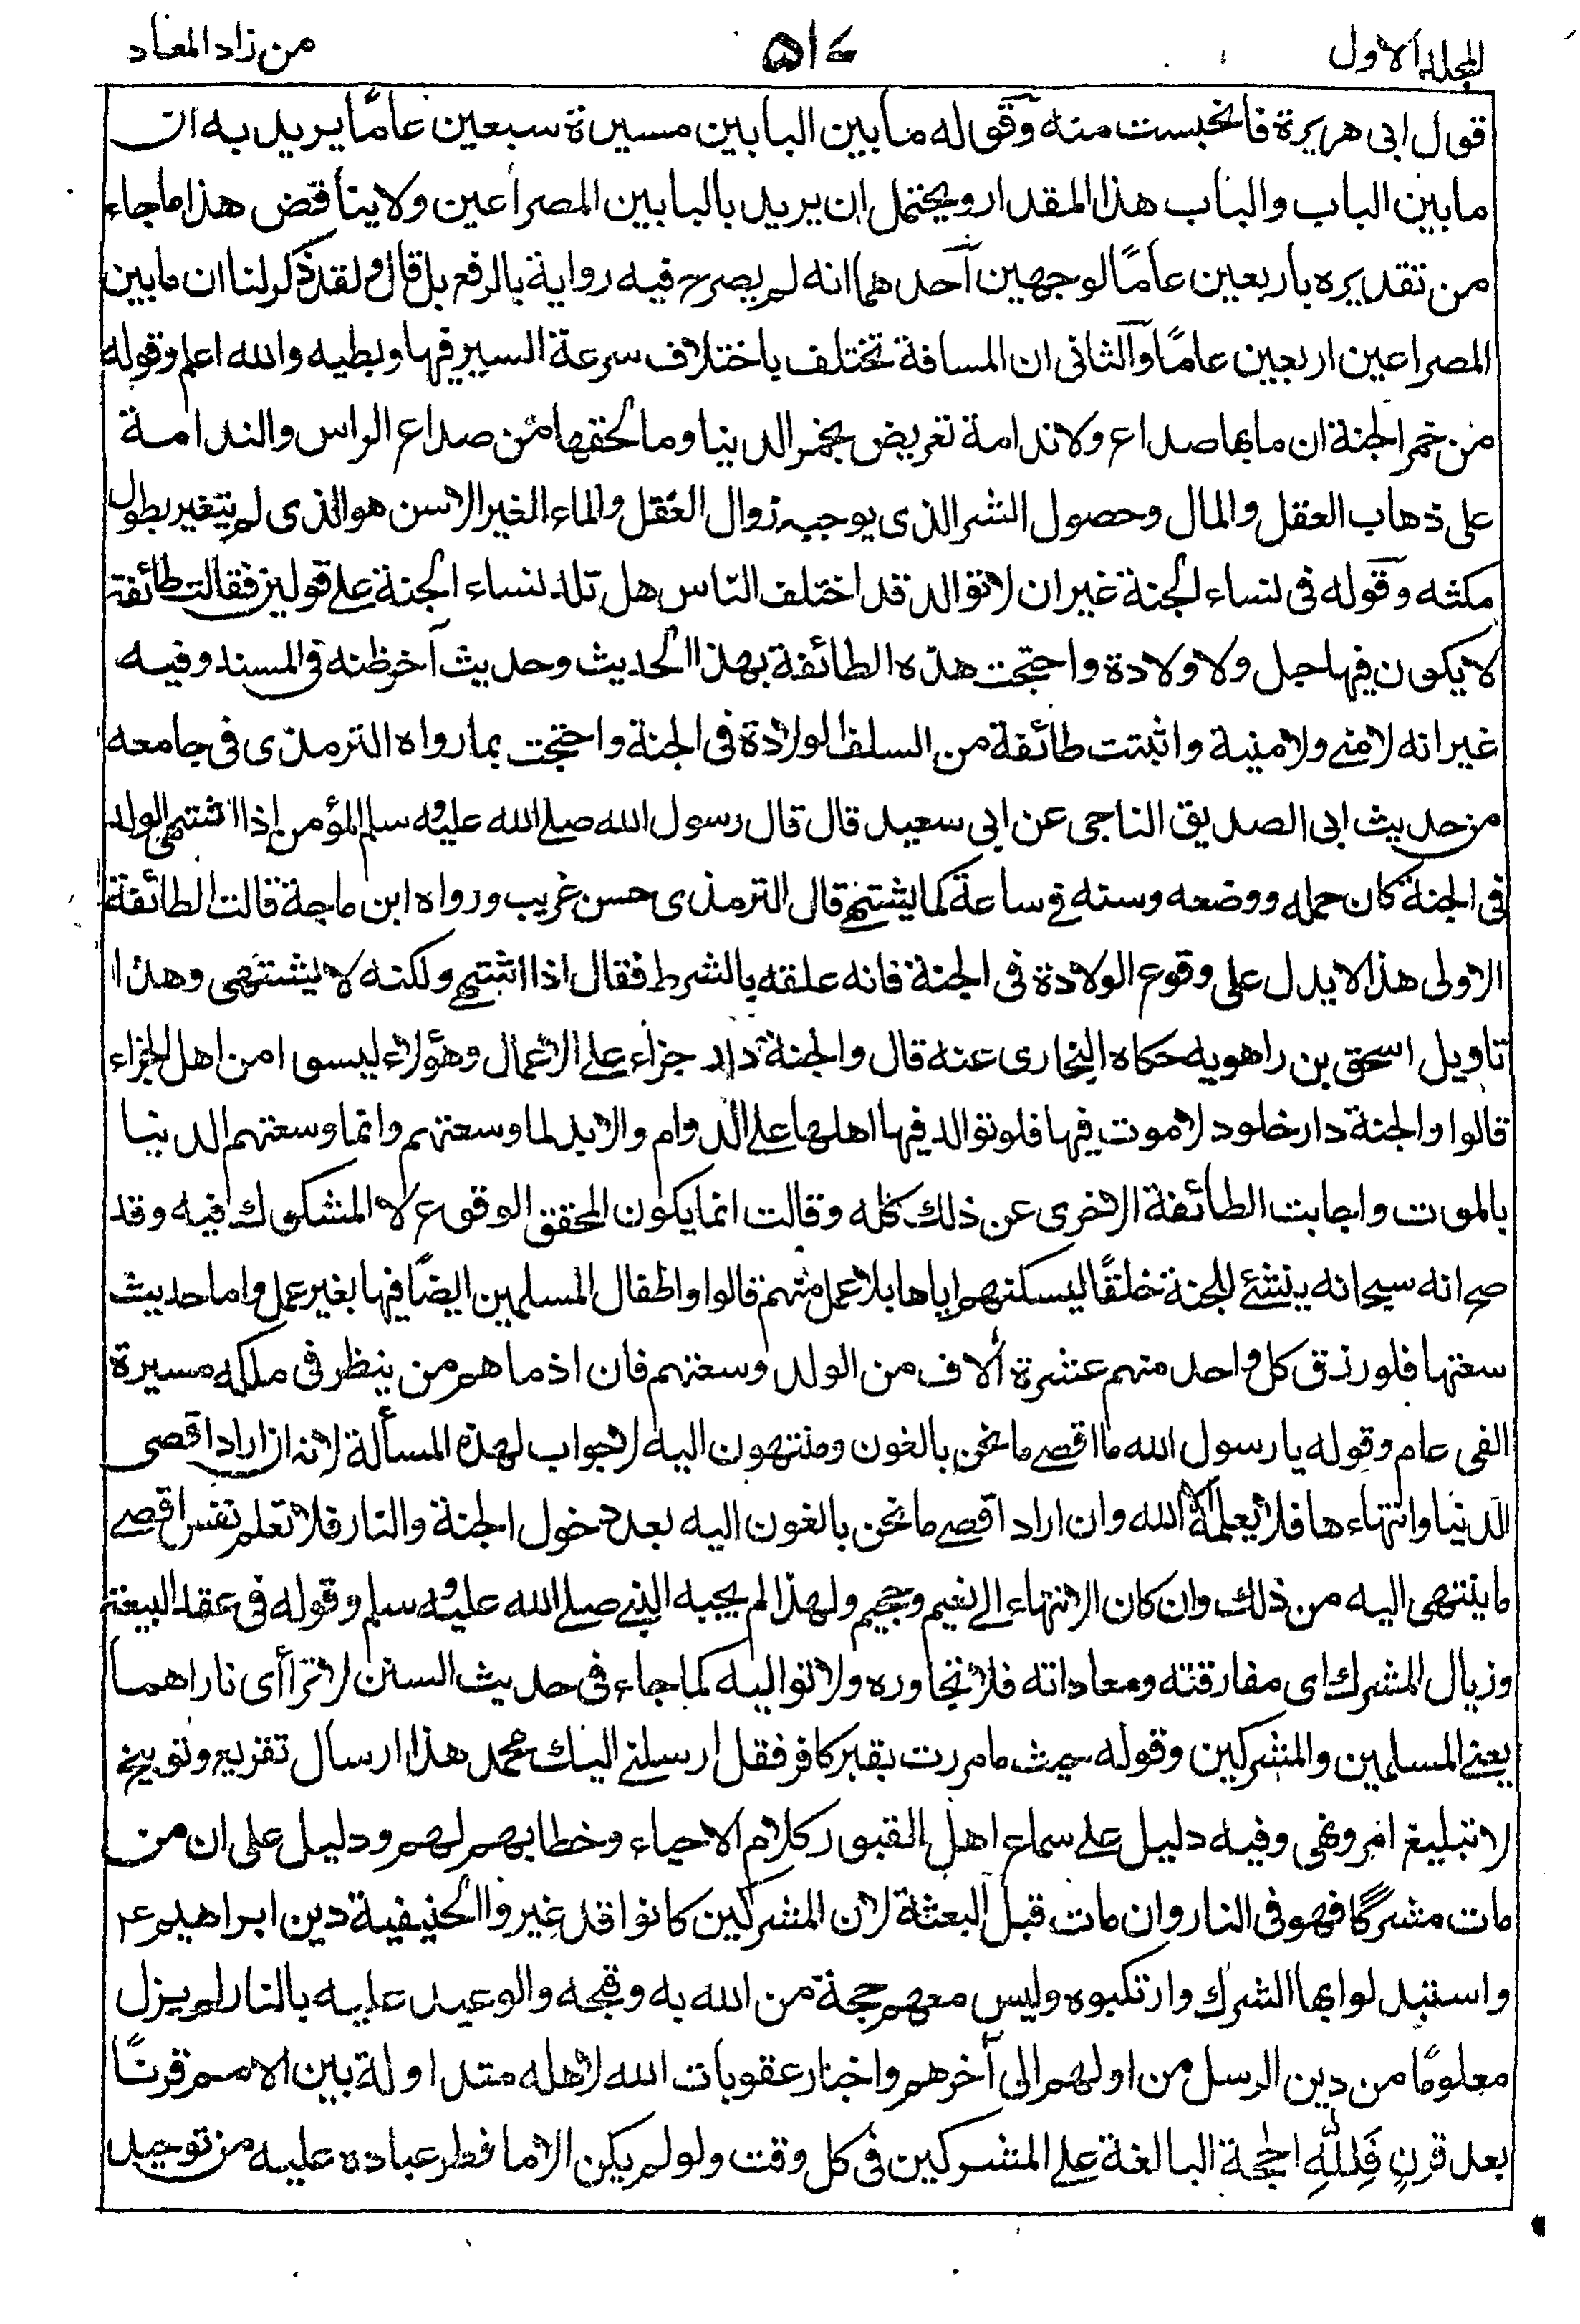 المجلد الاول
٥١٤
من زاد المعاد
قول ابى هريرة فانخبست منه وقوله مابين البابين مسيرة سبعين عامًا يريد به ان
مابين الباب والباب هذا المقدار ويحتمل ان يريد بالبابين المصراعين ولايناقض هذا ماجاء
من تقديره باربعين عامًا لوجهين احدهما انه لم يصرح فيه رواية بالرفع بل قال ولقد ذكر لنا ان مابين
المصراعين اربعين عامًا والثانى ان المسافة تختلف باختلاف سرعة السير فيها وبطيه والله اعلم وقوله
من خمر الجنة ان مابها صداع ولا ندامة تعريض بخمر الدينا وما لحقها من صداع الراس والندامة
على ذهاب العقل والمال وحصول الشر الذى يوجبه زوال العقل والماء الغير الاسن هو الذى لم يتغير بطول
مكثه وقوله فى نساء الجنة غير ان لا توالد قد اختلف الناس هل تلد نساء الجنة على قولين فقالت طائفة
لا يكون فيها حبل ولا ولادة واحتجت هذه الطائفة بهذا الحديث وحديث آخر ظنه فى المسند وفيه
غير انه لا منى ولا منية واثبتت طائفة من السلف الولادة فى الجنة واحتجت بما رواه الترمذى فى جامعه
من حديث ابى الصديق الناجى عن ابى سعيد قال قال رسول الله صلى الله عليه وسلم المؤمن اذا اشتهى الولد
فى الجنة كان حمله ووضعه وسنه فى ساعة كما يشتهى قال الترمذى حسن غريب ورواه ابن ماجة قالت الطائفة
الاولى هذا لا يدل على وقوع الولادة فى الجنة فانه علقه بالشرط فقال اذا اشتهى ولكنه لا يشتهى وهذا
تاويل اسحق بن راهويه حكاه البخارى عنه قال والجنة دار جزاء على الاعمال وهؤلاء ليسوا من اهل الجزاء
قالوا والجنة دار خلود لا موت فيها فلو توالد فيها اهلها على الدوام والابد لما وسعتهم وانما وسعتهم الدينا
بالموت واجابت الطائفة الاخرى عن ذلك كله وقالت انما يكون المحقق الوقوع لا المشكوك فيه وقد
صح انه سبحانه ينشئ للجنة خلقًا ليسكنهم اياها بلا عمل منهم قالوا واطفال المسلمين ايضًا فيها بغير عمل واما حديث
سعتها فلو رزق كل واحد منهم عشرة آلاف من الولد وسعتهم فان ادناهم من ينظر فى ملكه مسيرة
الفى عام وقوله يا رسول الله ما اقصى ما نحن بالغون ومنتهون اليه لا جواب لهذه المسألة لانه ان اراد اقصى
الدنيا وانتهاءها فلا يعلمه الا الله وان اراد اقصى ما نحن بالغون اليه بعد دخول الجنة والنار فلا تعلم نفس اقصى
ما ينتهى اليه من ذلك وان كان الانتهاء الى نعيم وجحيم ولهذا لم يجبه النبى صلى الله عليه وسلم وقوله فى عقد البيعة
وزيال المشرك اى مفارقته ومعاداته فلا تجاوره ولا تواليه كما جاء فى حديث السنن لا تراأى ناراهما
يعنى المسلمين والمشركين وقوله حيث ما مررت بقبر كافر فقل ارسلنى اليك محمد هذا ارسال تقريع وتوبيخ
لا تبليغ امر ونهى وفيه دليل على سماع اهل القبور كلام الاحياء وخطابهم لهم ودليل على ان من
مات مشركًا فهو فى النار وان مات قبل البعثة لان المشركين كانوا قد غيروا الحنيفية دين ابراهيم ع
واستبدلوا بها الشرك وارتكبوه وليس معهم حجة من الله به وقبحه والوعيد عليه بالنار لم يزل
معلومًا من دين الرسل من اولهم الى آخرهم واخبار عقوبات الله لاهله متداولة بين الامم قرنًا
بعد قرنٍ فَلِلّٰهِ الحجة البالغة على المشركين فى كل وقت ولو لم يكن الا ما فطر عباده عليه من توحيد